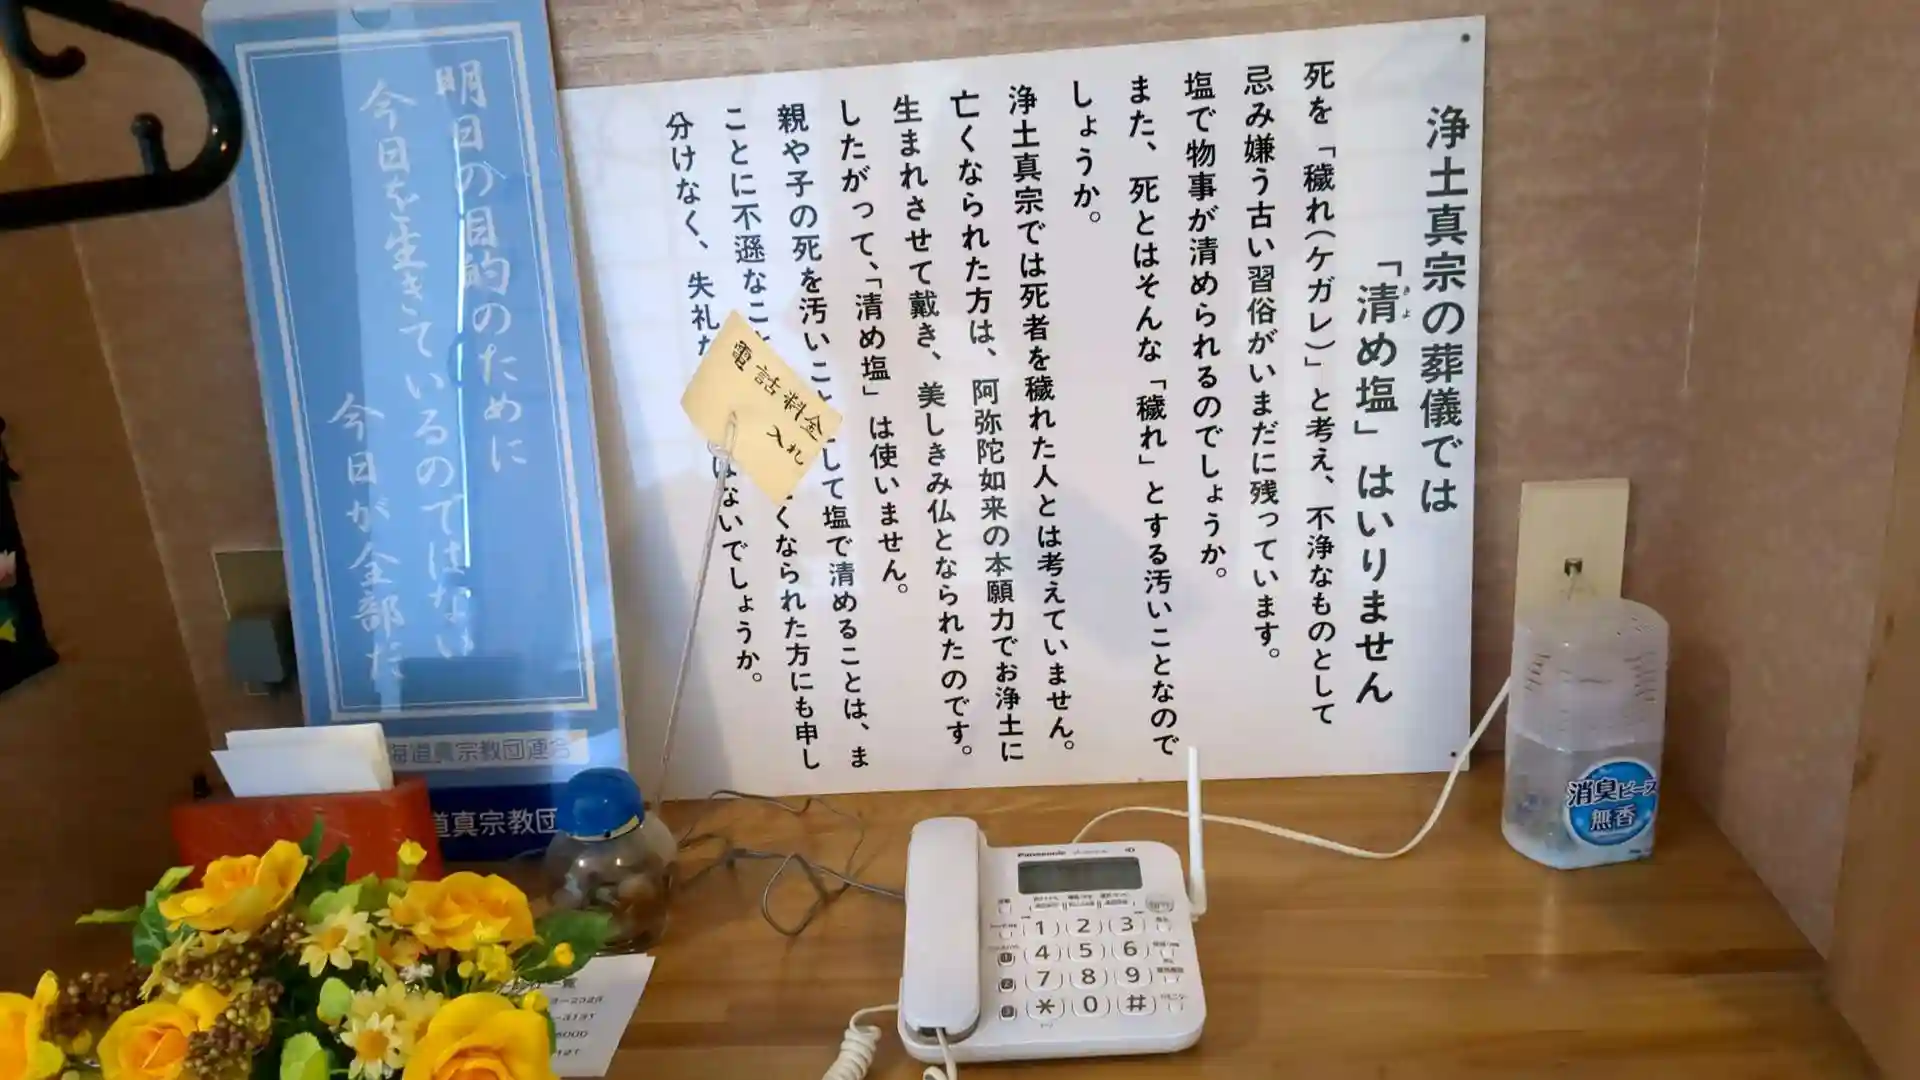 浄土真宗の葬儀では
「清め塩」はいりません
きよ
死を「穢れ(ケガレ)」と考え、不浄なものとして
忌み嫌う古い習俗がいまだに残っています。
塩で物事が清められるのでしょうか。
また、死とはそんな「穢れ」とする汚いことなので
しょうか。
浄土真宗では死者を穢れた人とは考えていません。
亡くなられた方は、阿弥陀如来の本願力でお浄土に
生まれさせて戴き、美しきみ仏となられたのです。
したがって、「清め塩」は使いません。
親や子の死を汚いこと して塩で清めることは、ま
ことに不遜なこ くなられた方にも申し
分けなく、失礼 はないでしょうか。
電話料金
入れ
明日の目的のために
今日を生きているのではない
今日が全部だ
海道真宗教団連合
道真宗教団
消臭ビーズ
無香
Panasonic
1 2 3
4 5 6
7 8 9
* 0 #